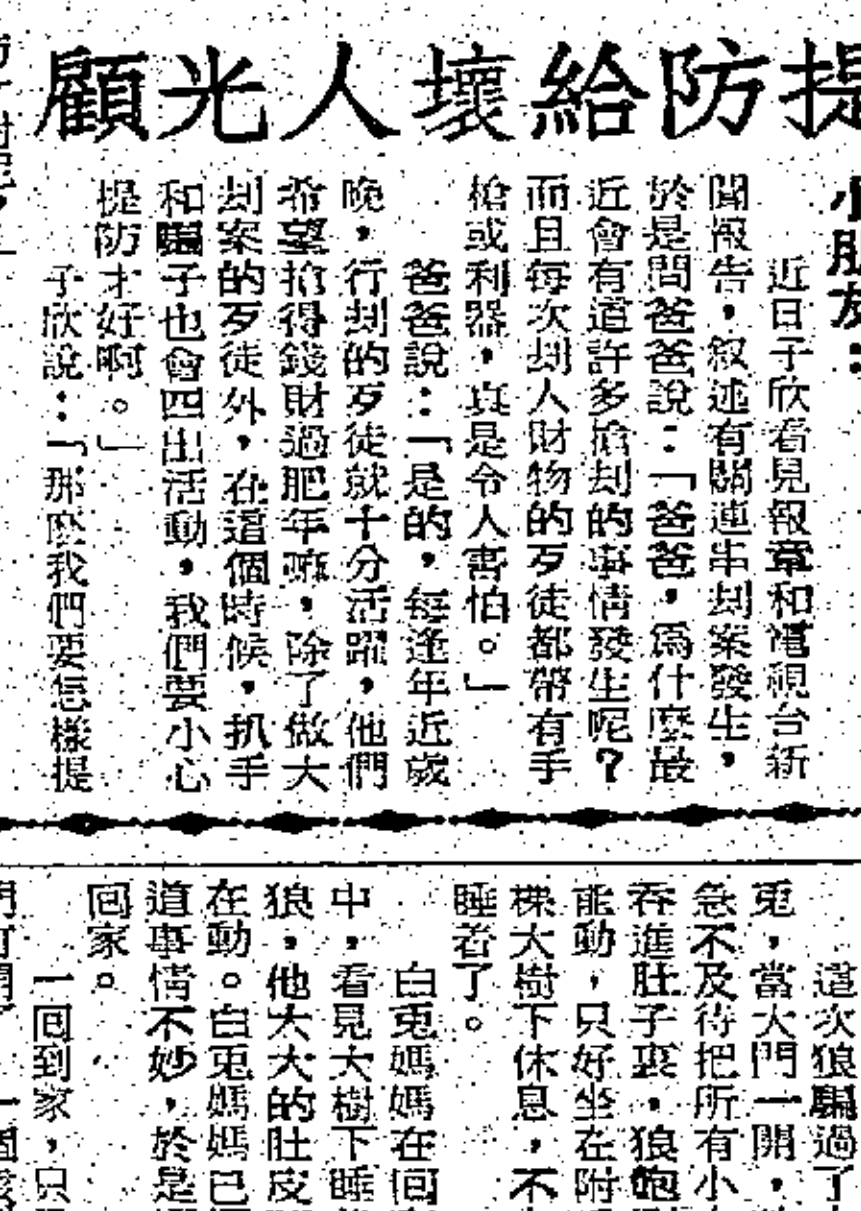 提防給壞人光顧
小朋友：
近日子欣看見報章和電視台新
聞報告，叙述有關連串刦案發生，
於是問爸爸說：「爸爸，爲什麼最
近會有這許多搶刦的事情發生呢？
而且每次刦人財物的歹徒都帶有手
槍或利器，真是令人害怕。」
爸爸說：「是的，每逢年近歲
晚，行刦的歹徒就十分活躍，他們
希望搶得錢財過肥年嘛，除了做大
刦案的歹徒外，在這個時候，扒手
和騙子也會四出活動，我們要小心
提防才好啊。」
子欣說：「那麼我們要怎樣提
這次狼騙過了
兎，當大門一開，
急不及待把所有小
吞進肚子裏，狼飽
能動，只好坐在附
棵大樹下休息，不
睡着了。
白兎媽媽在回
中，看見大樹下睡
狼，他大大的肚皮
在動。白兎媽媽已
道事情不妙，於是
回家。
一回到家，只